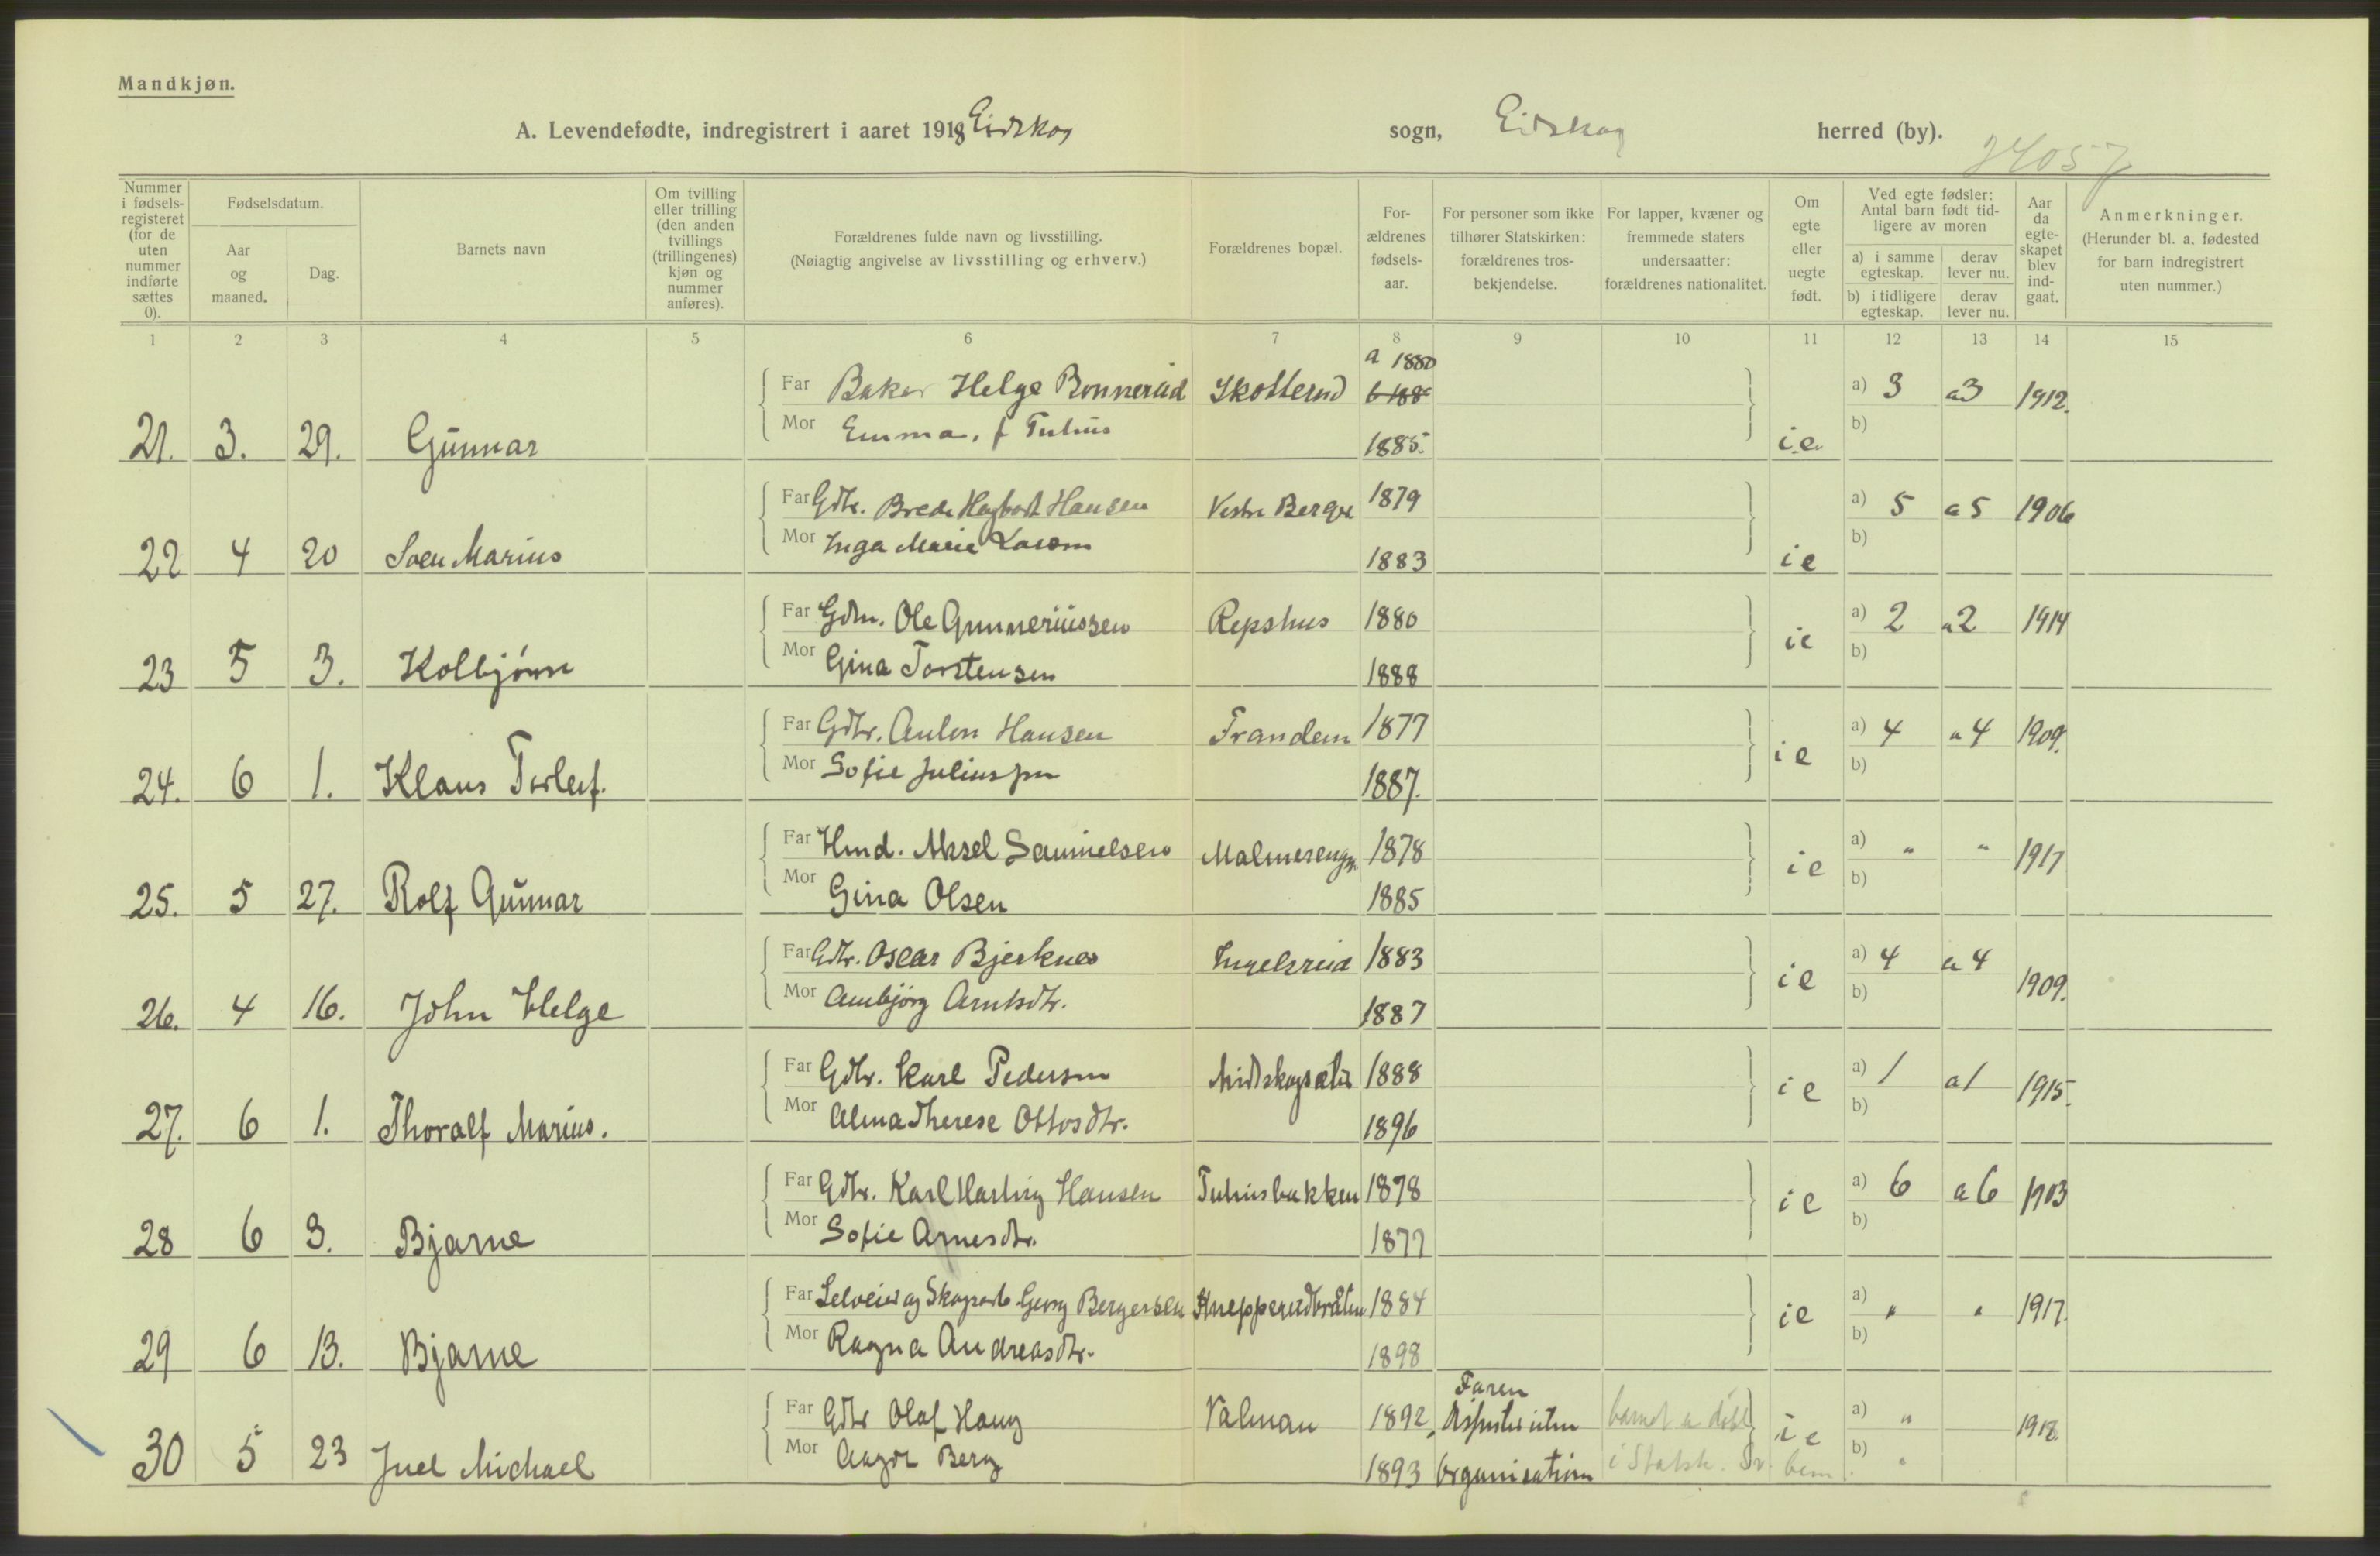 Mandkjøn.
A. Levendefødte, indregistrert i aaret 1918 Eidskog sogn, Eidskog herred (by).
24057
Nummer i fødsels-registeret (for de uten nummer indførte sættes 0).
Fødselsdatum.
Aar og maaned.
Dag.
Barnets navn
Om tvilling eller trilling (den anden tvillings (trillingenes) kjøn og nummer anføres).
Forældrenes fulde navn og livsstilling.
(Nøiagtig angivelse av livsstilling og erhverv.)
Forældrenes bopæl.
For-ældrenes fødsels-aar.
For personer som ikke tilhører Statskirken: forældrenes tros-bekjendelse.
For lapper, kvæner og fremmede staters undersaatter: forældrenes nationalitet.
Om egte eller uegte født.
Ved egte fødsler: Antal barn født tid-ligere av moren
a) i samme egteskap.
derav lever nu.
b) i tidligere egteskap.
derav lever nu.
Aar da egte-skapet blev ind-gaat.
Anmerkninger.
(Herunder bl. a. fødested for barn indregistrert uten nummer.)
1 2 3 4 5 6 7 8 9 10 11 12 13 14 15
a 1880
Far Baker Helge Bonnerud Skotterud a) 3 a3 1912.
Mor Emma, f Tuhus b)
21. 3. 29. Gunnar 1885. i.e.
Far Gdbr. Brede Hagbart Hansen Vestre Berger 1879 a) 5 a5 1906
Mor Inga Marie b)
22 4 20 Sven Marius 1883 i e
Far Gdbr. Ole Gunneriussen Repshus 1880 a) 2 a2 1914
Mor Gina Torstensen ie b)
23 5 3. Kolbjørn 1888
Far Gdbr. Anton Hansen Trandem 1877 a) 4 a4 1909.
Mor Sofie Juliusen i e b)
24. 6 1. Klaus Torleif. 1887.
Far Hmd. Aksel Samuelsen 1878 a) " " 1917
Mor Gina Olsen i e b)
25. 5 27. Rolf Gunnar 1885
Far Gdbr. Oscar Bjerknes Ingelsrud 1883 a) 4 a 4 1909.
Mor Ambjørg Arntsdtr. i e b)
26. 4 16. John Helge 1887
Far Gdbr. Karl Pedersen 1888 a) 1 a1 1915.
Mor Alma Therese Ottosdtr. i e b)
27. 6 1. Thoralf Marius. 1896
Far Gdbr. Karl Hartvig Hansen Tuhusbakken 1878 a) 6 a 6 1903
Mor Sofie Arnesdtr. i e b)
28 6 3. Bjarne 1877
Far Selveier og Skogsarb. Georg Bergersen Knepperudbråten 1884 a) " " 1917.
Mor Ragna Andreasdtr. ie b)
29 6 13. Bjarne 1898
Faren
Far Gdbr Olaf Haug Valmon 1892, uten barnet er døbt i e a) " 1918
Mor Aagot Berg b) "
30 5 23 Juel Michael 1893 Organisation i Statsk.